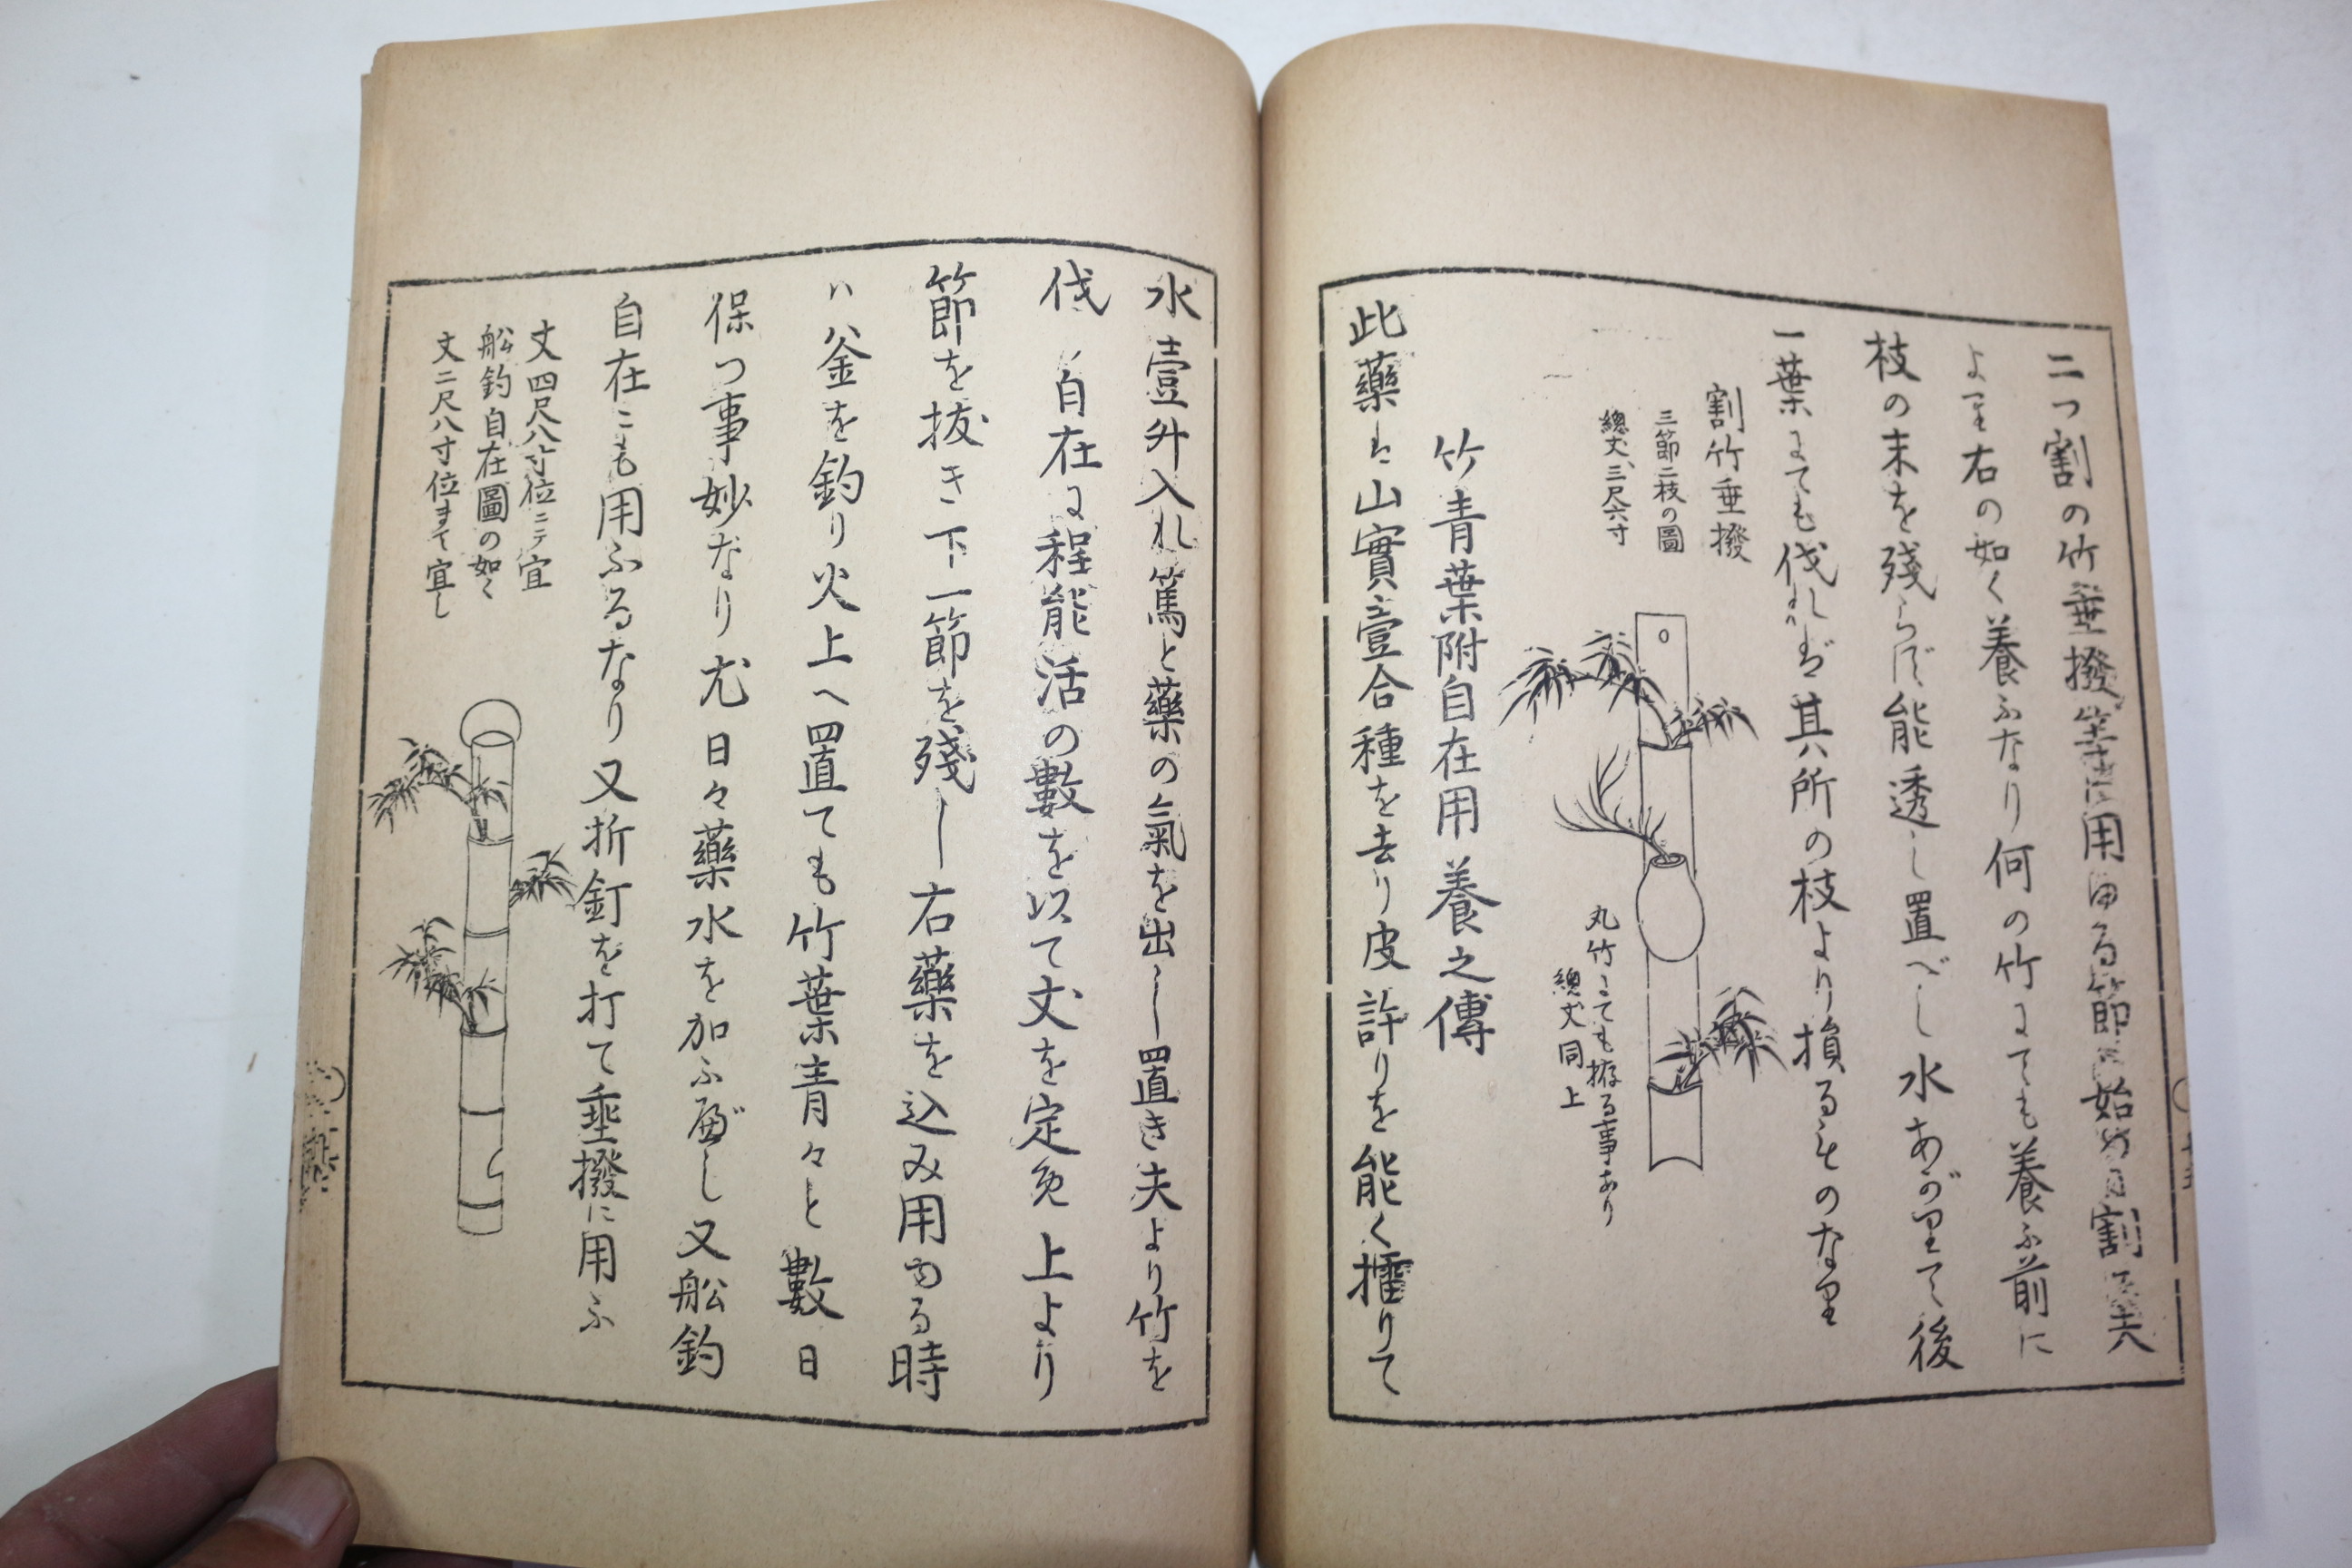 二つ割の竹垂撥等に用ゆる節始め割
より右の如く養ふなり何の竹にても養ふ前に
枝の末を残らず能透し置べし水あがりて後
一葉にても伐れば其所の枝より損るものなり
割竹垂撥
三節二枝の圖
總丈三尺六寸
丸竹にても拵る事あり
總丈同上
竹青葉附自在用養之傳
此藥は山實壹合種を去り皮許りを能く擂りて
水壹升入れ篤と藥の氣を出し置き夫より竹を
伐 自在に程能活の數を以て丈を定免上より
節を抜き下一節を殘し右藥を込み用ゆる時
ハ釜を釣り火上へ置ても竹葉青々と數日
保つ事妙なり尤日々藥水を加ふべし又船釣
自在にも用ふるなり又折釘を打て垂撥に用ふ
丈四尺八寸位ニテ宜
船釣自在圖の如く
丈二尺八寸位まて宜し